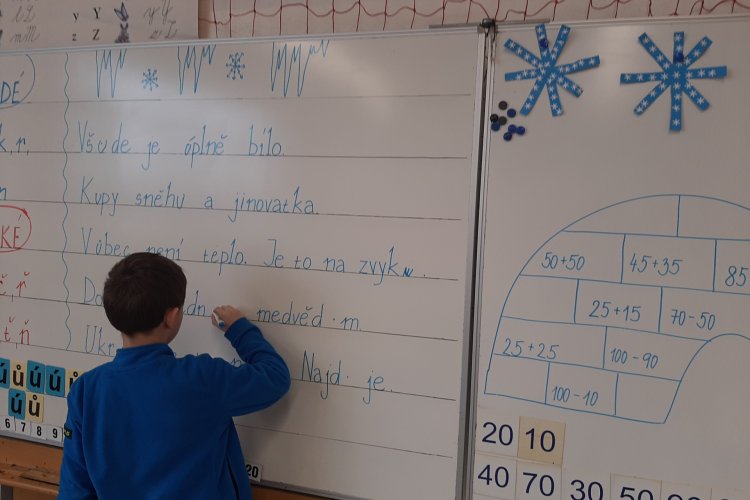 y Y
z Z
DÉ
k, r,
KÉ
ě, ř
ť, ň
Všude je óplně bílo.
Kupy sněhu a jinovatka.
Vůbec není teplo. Je to na zvyk .
Do dn medvěd . m.
Ukr Najd . je.
ú ú ú
ú ů
6 7 8 9
20
50+50 45+35 85
25+15 70-50
25+25 100-90
100-10
20 10
40 70 30 50